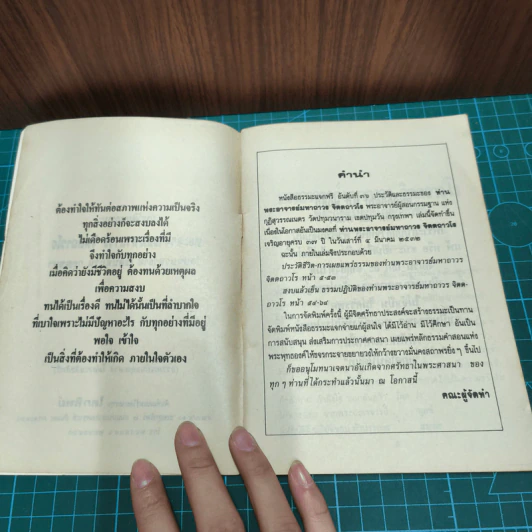 ต้องทำใจให้ทันต่อสภาพแห่งความเป็นจริง
ทุกสิ่งอย่างก็จะสงบลงได้
ไม่เดือดร้อนเพราะเรื่องที่มี
จึงทำใจกับทุกอย่าง
เมื่อคิดว่ายังมีชีวิตอยู่ ต้องทนด้วยเหตุผล
เพื่อความสงบ
ทนได้เป็นเรื่องดี ทนไม่ได้นั้นเป็นที่ลำบากใจ
ที่เบาใจเพราะไม่มีปัญหาอะไร กับทุกอย่างที่มีอยู่
พอใจ เข้าใจ
เป็นสิ่งที่ต้องทำให้เกิด ภายในใจตัวเอง
คำนำ
หนังสือธรรมะแจกฟรี อันดับที่ ๓๖ ประวัติและธรรมะของ ท่าน
พระอาจารย์มหาถาวร จิตตถาวโร พระอาจารย์ผู้สอนกรรมฐาน แห่ง
วัดปทุมวนาราม เขตปทุมวัน กรุงเทพฯ เล่มนี้จัดทำขึ้น
เนื่องในโอกาสอันเป็นมงคลที่ ท่านพระอาจารย์มหาถาวร จิตตถาวโร
เจริญอายุครบ ๓๗ ปี ในวันเสาร์ที่ ๔ มีนาคม ๒๕๓๓
ฉะนั้น ภายในเล่มจึงประกอบด้วย
ประวัติชีวิต-การเผยแพร่ธรรมของท่านพระอาจารย์มหาถาวร
จิตตถาวโร หน้า ๔-๕๓
สงบแล้วเย็น ธรรมปฏิบัติของท่านพระอาจารย์มหาถาวร จิตตถาวโร
หน้า ๕๕-๖๔
ในการจัดพิมพ์ครั้งนี้ ผู้มีจิตศรัทธาประสงค์จะสร้างธรรมะเป็นทาน
จัดพิมพ์หนังสือธรรมะแจกแก่ผู้สนใจ ได้มีไว้อ่าน มีไว้ศึกษา อันเป็น
การสนับสนุน ส่งเสริมการประกาศศาสนา เผยแพร่หลักธรรมคำสอนแห่ง
พระพุทธองค์ให้ขจรกระจายขยายวงให้กว้างยาวมั่นคงสถาพรยิ่ง ๆ ขึ้นไป
ก็ขออนุโมทนาเจตนาอันเกิดจากศรัทธาในพระศาสนา ของ
ทุก ๆ ท่านที่ได้กระทำแล้วนั้นมา ณ โอกาสนี้
คณะผู้จัดทำ